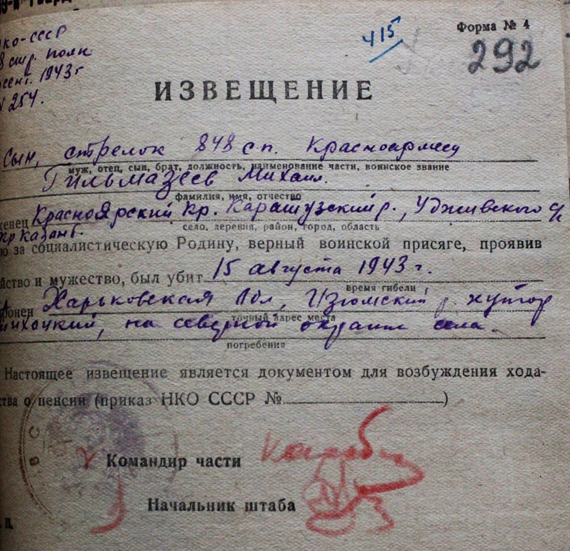 Форма № 4
415
292
НКО-СССР
8 стр. полк
1943 г
254.
ИЗВЕЩЕНИЕ
Сын, стрелок 848 сп. Красноармеец
муж, отец, сын, брат, должность, наименование части, воинское звание
Гильмазеев Михаил.
фамилия, имя, отчество
женец Красноярский кр. Каратузский р.,
село, деревня, район, город, область
ю за социалистическую Родину, верный воинской присяге, проявив
йство и мужество, был убит 15 августа 1943 г.
время гибели
ронен Харьковская обл, Изюмский р хутор
точный адрес места
на северной окраине села.
погребения
Настоящее извещение является документом для возбуждения хода-
ства о пенсии (приказ НКО СССР № )
Командир части
Начальник штаба
П.